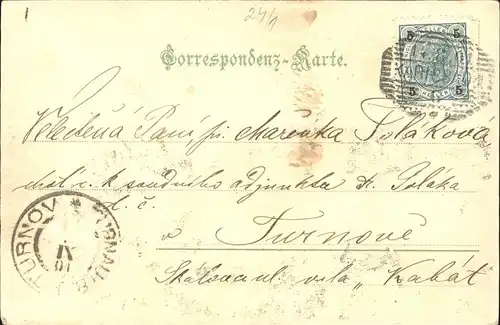 1
24/4
5 5
5 5
Correspondenz-Karte.
Velectěná Paní, pí Mařenka Poláková
chot c. k. soudního adjunkta p. Poláka
d. č.
v Turnově
Skálova ul. vila „Kabát"
TURNOV * TURNAU